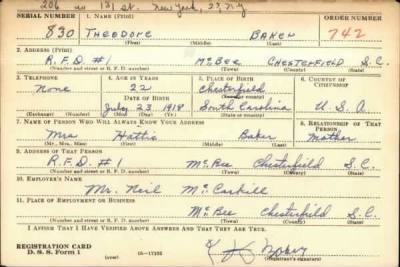 206 W 131 st. New York, 27, N.Y
SERIAL NUMBER 1. NAME (Print) ORDER NUMBER
830 THEODORE BAKER 742
(First) (Middle) (Last)
2. ADDRESS (Print)
R.F.D. #1 McBEE CHESTERFIELD S.C.
(Number and street or R. F. D. number) (Town) (County) (State)
3. TELEPHONE 4. AGE IN YEARS 5. PLACE OF BIRTH 6. COUNTRY OF CITIZENSHIP
None 22 Chesterfield
DATE OF BIRTH (Town or county)
July 23 1918 South Carolina U.S.A
(Exchange) (Number) (Mo.) (Day) (Yr.) (State or country)
7. NAME OF PERSON WHO WILL ALWAYS KNOW YOUR ADDRESS 8. RELATIONSHIP OF THAT PERSON
Mrs Hattie Baker Mother
(Mr., Mrs., Miss) (First) (Middle) (Last)
9. ADDRESS OF THAT PERSON
R.F.D. #1 McBee Chesterfield S.C.
(Number and street or R. F. D. number) (Town) (County) (State)
10. EMPLOYER'S NAME
Mr. Neil McCaskill
11. PLACE OF EMPLOYMENT OR BUSINESS
McBee Chesterfield S.C.
(Number and street or R. F. D. number) (Town) (County) (State)
I AFFIRM THAT I HAVE VERIFIED ABOVE ANSWERS AND THAT THEY ARE TRUE.
REGISTRATION CARD
D. S. S. Form 1 (over)
(Registrant's signature)